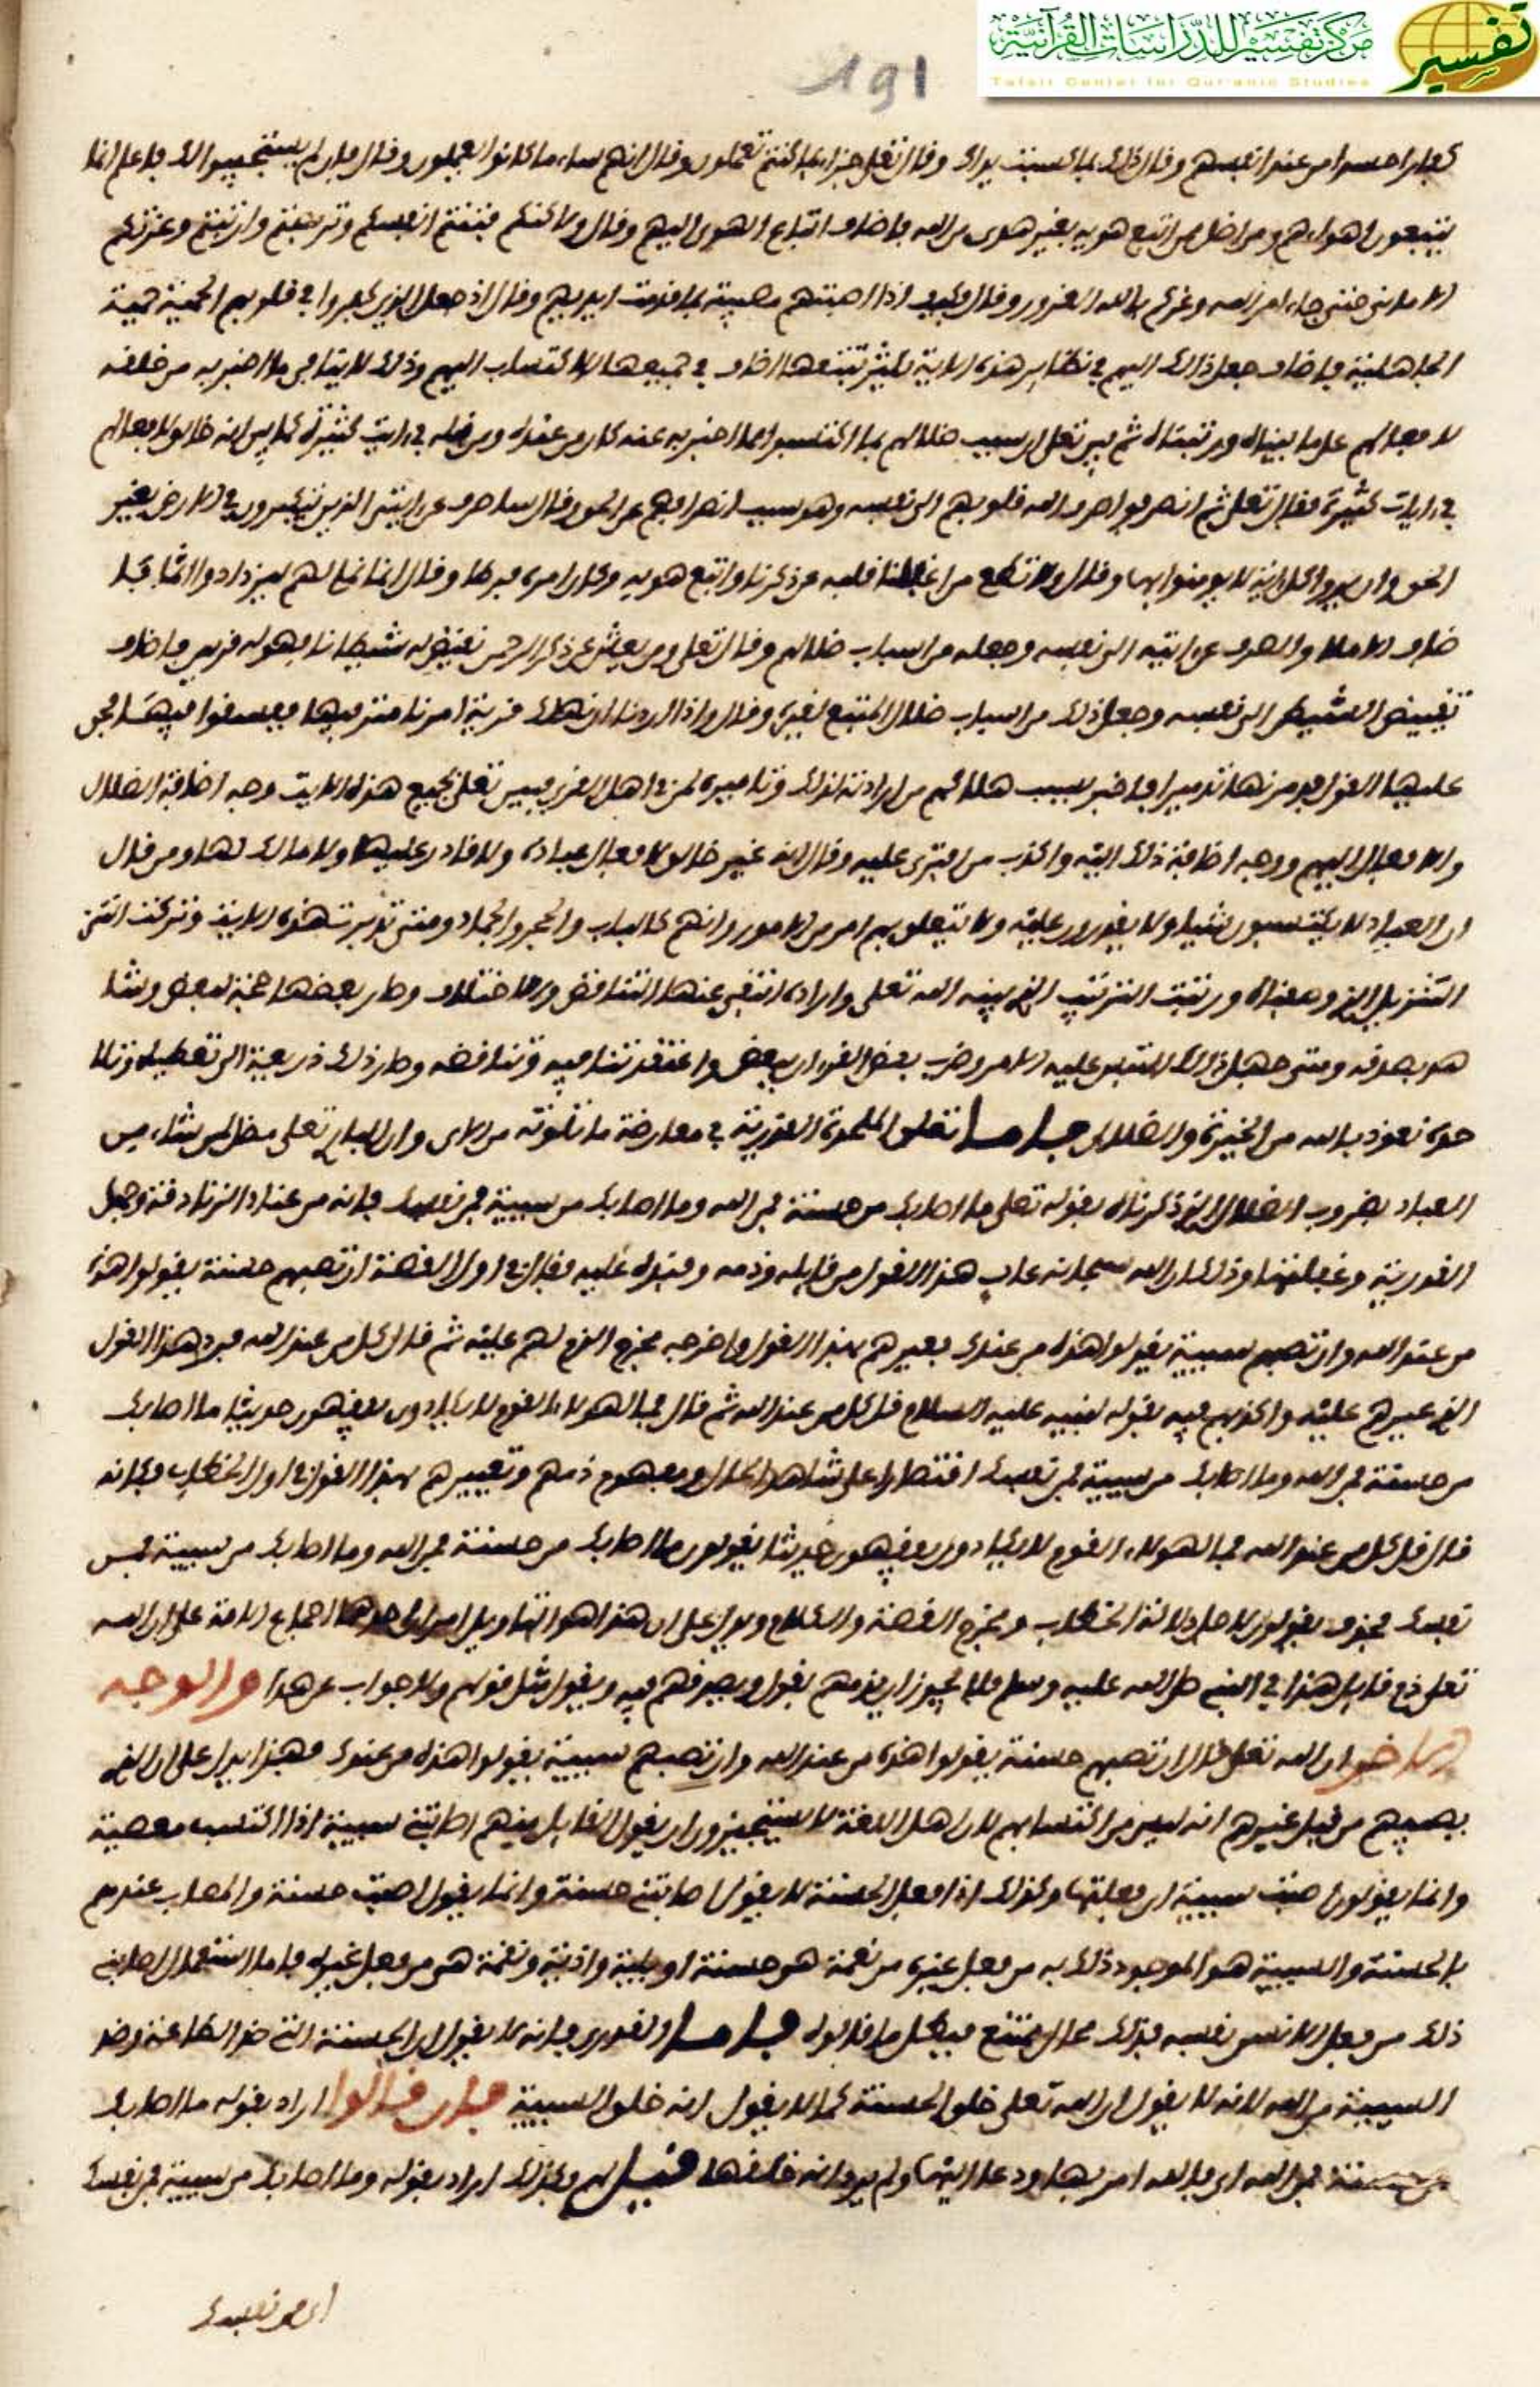 مركز تفسير للدراسات القرآنية
Tafsir Center for Qur'anic Studies
تفسير
191
كفارا حسدا من عند انفسهم وقال ذلك بما كسبت يداك وقال تعلى جزاء بما كنتم تعملون وقال انهم ساء ما كانوا يعملون وقال فان لم يستجيبوا لك فاعلم انما
يتبعون اهواءهم ومن اضل ممن اتبع هويه بغير هدى من الله فاضاف اتباع الهوى اليهم وقال ولاكنكم فتنتم انفسكم وتربصتم وارتبتم وغرتكم
الاماني حتى جاء امر الله وغركم بالله الغرور وقال فكيف اذا اصبتهم مصيبة بما قدمت ايديهم وقال اذ جعل الذين كفروا في قلوبهم الحمية حمية
الجاهلية فاضاف جعل ذلك اليهم في نظاير هذه الاية يكثر تتبعها اضاف في جميعها الاكتساب اليهم وذلك لا ينافي ما اخبر به من خلقه
لافعالهم على ما بيناه ورتبناه ثم بين تعلى ان سبب ضلالهم بما اكتسبوا مما اخبر به عنه كان من عنده ومن قبله في ايت كثيرة كما بين انه خالق لافعالهم
في ايات كثيرة فقال تعلى ثم انصرفوا صرف الله قلوبهم الى نفسه وهو سبب انصرافهم عن الحق وقال ساصرف عن ايتي الذين يتكبرون في الارض بغير
الحق وان يروا كل اية لا يومنوا بها وقال ولا تطع من اغفلنا قلبه عن ذكرنا واتبع هويه وكان امره فرطا وقال انما نملي لهم ليزدادوا اثما فا
ضاف الاملا والصرف عن ايته الى نفسه وجعله من اسباب ضلالهم وقال تعلى ومن يعش عن ذكر الرحمن نقيض له شيطانا فهو له قرين فاضاف
تقييض الشيطن الى نفسه وجعل ذلك من اسباب ضلال المتبع لغيره وقال واذا اردنا ان نهلك قرية امرنا مترفيها ففسقوا فيها فحق
عليها القول فدمرنها تدميرا فاخبر بسبب هلاكهم من ارادته لذلك وتاميره لمن في اهل القرى فبين تعلى بجميع هذه الايت وجه اضافة الضلال
والافعال اليهم ووجه اضافة ذلك اليه واكذب من افترى عليه وقال انه غير خالق لافعال عباده ولا قادر عليها ولا مالك لها ومن قال
ان العباد لا يكتسبون شيا ولا يقدرون عليه ولا يتعلق بهم امر من الامور وانهم كالباب والحجر والجماد ومتى تدبرت هذه الايت وتركت التى
التنزيل الذي وصفناه ورتبت الترتيب الذي بينه الله تعلى واراده انتفى عنها التناقض والاختلاف وصار بعضها حجة لبعض وشا
هد بصدقه ومتى جهل ذلك التبس عليه الامر وضرب بعض القران ببعض واعتقد تنافيه وتناقضه وصار ذلك ذريعة الى تعطيله وتلا
حوه نعوذ بالله من الحيرة والضلال فاما تعلق الملحدة القدرية في معارضة ما تلوته من الاى وان الباري تعلى مضل لمن شاء من
العباد بضروب الضلال الذي ذكرناه بقوله تعلى ما اصابك من حسنة فمن الله وما اصابك من سيية فمن نفسك فانه من عناد الزنادقة وجهل
القدرية وغفلتها وذلك ان الله سبحانه عاب هذا القول من قايله وذمه وقبحه عليه فقال في اول القصة ان تصبهم حسنة يقولوا هذه
من عند الله وان تصبهم سيية يقولوا هذه من عندك بعيرهم بهذا القول واخرجه مخرج الذم لهم عليه ثم قال كل من عند الله فرد هذا القول
الذي عيرهم عليه واكذبهم فيه بقوله لنبيه عليه السلام قل كل من عند الله ثم قال فمال هولاء القوم لا يكادون يفقهون حديثا ما اصابك
من حسنة فمن الله وما اصابك من سيية فمن نفسك اقتصارا على شاهد الحال ومفهوم ذمهم وتعييرهم بهذا القول في اول الخطاب فكانه
قال قل كل من عند الله فمال هولاء القوم لا يكادون يفقهون حديثا يقولون ما اصابك من حسنة فمن الله وما اصابك من سيية فمن
نفسك فحذف يقولون لاجل دلالة الخطاب ومخرج القصة والكلام ويدل على ان هذا هو التاويل امران احدهما اجماع الامة على ان الله
تعلى ذم قايل هذا في النبي صلى الله عليه وسلم فلا يجوز ان يذمهم بقول ويصدقهم فيه ويقول مثل قولهم ولا جواب عن هذا والوجه
الاخر ان الله تعلى قال ان تصبهم حسنة يقولوا هذه من عند الله وان تصبهم سيية يقولوا هذه من عندك فهذا يدل على ان الذي
يصيبهم من قبل غيرهم انه ليس من اكتسابهم لان اهل اللغة لا يستجيزون ان يقول القايل منهم اصابتني سيية اذا اكتسب معصية
وانما يقولون اصبت سيية اى فعلتها وكذلك اذا فعل الحسنة لا يقول اصابتني حسنة وانما يقول اصبت حسنة والمصاب عندهم
بالحسنة والسيية هو الموجود ذلك به من فعل غيره من نعمة هي حسنة او بلية واذية ونقمة هي من فعل غيره فاما استعمال اصابني
ذلك من فعل الانسن نفسه فذلك محال ممتنع فبطل ما قالوه فاما القدرى فانه لا يقول ان الحسنة التي هي الطاعة وضد
السيية من الله لانه لا يقول ان الله تعلى خلق الحسنة كما لا يقول انه خلق السيية فان قالوا اراد بقوله ما اصابك
من حسنة فمن الله اى فالله امر بها ودعا اليها ولم يرد انه خلقها قيل لهم وكذلك اراد بقوله وما اصابك من سيية فمن نفسك
اى من نفسك